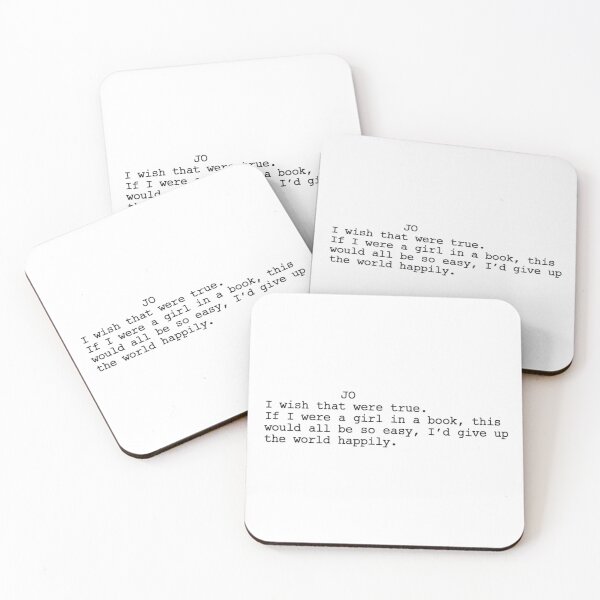 JO
I wish that were true.
If I were a in a book,
would I'd
JO
I wish that were true.
If I were a girl in a book, this
would all be so easy, I'd give up
the world happily.
JO
I wish that were true.
If I were a girl in a book, this
would all be so easy, I'd give up
the world happily.
JO
I wish that were true.
If I were a girl in a book, this
would all be so easy, I'd give up
the world happily.